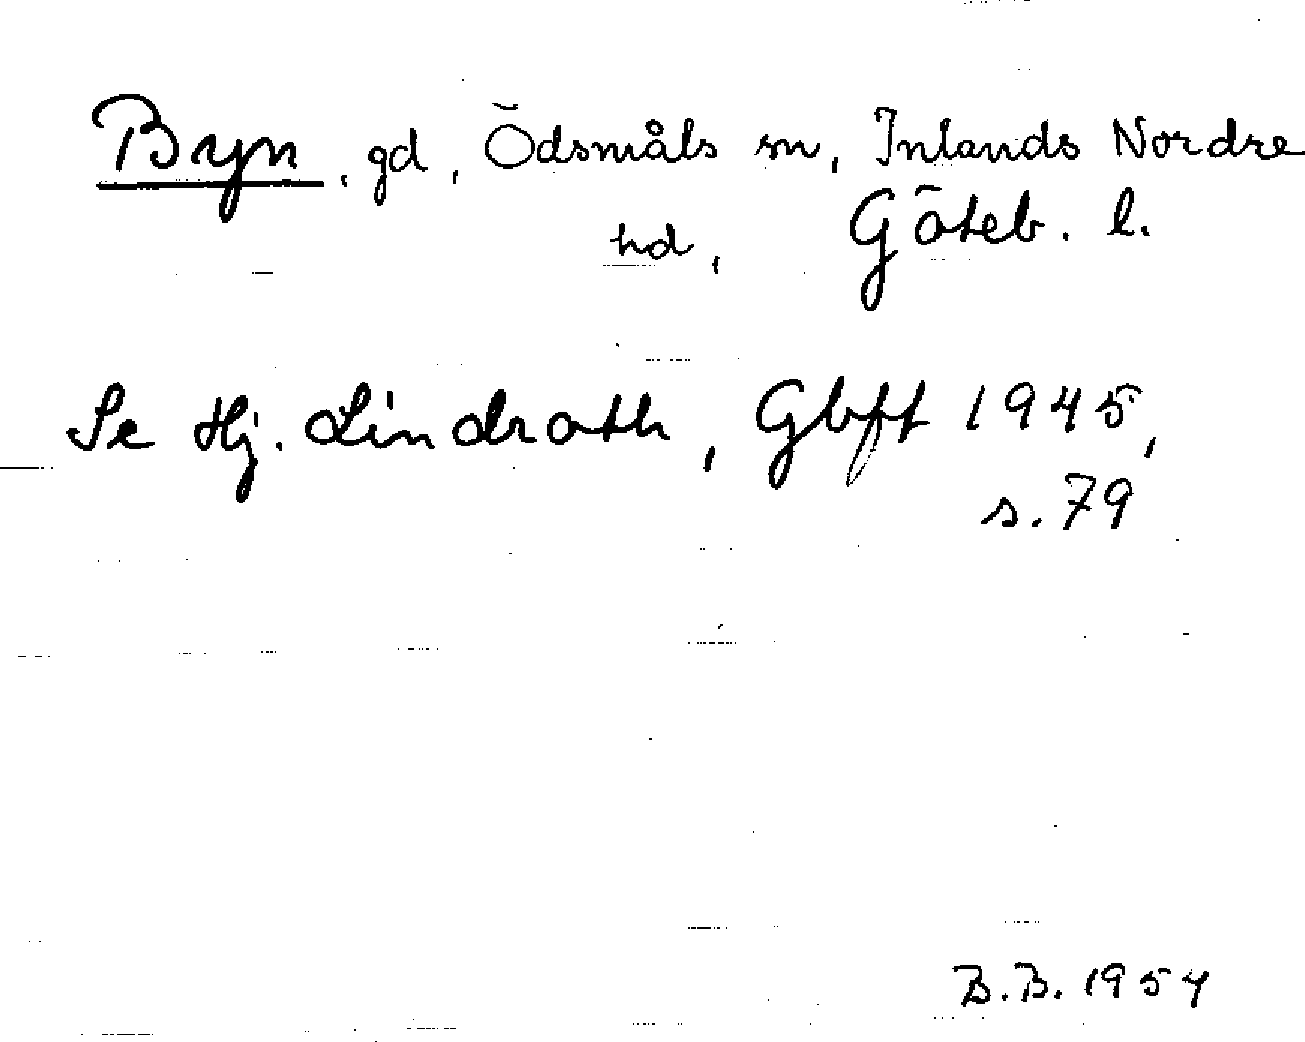 Byn, gd, Ödsmåls sn, Inlands Nordre
hd, Göteb. l.
Se Hj. Lindroth, Gbfft 1945,
s. 79
B.B. 1954